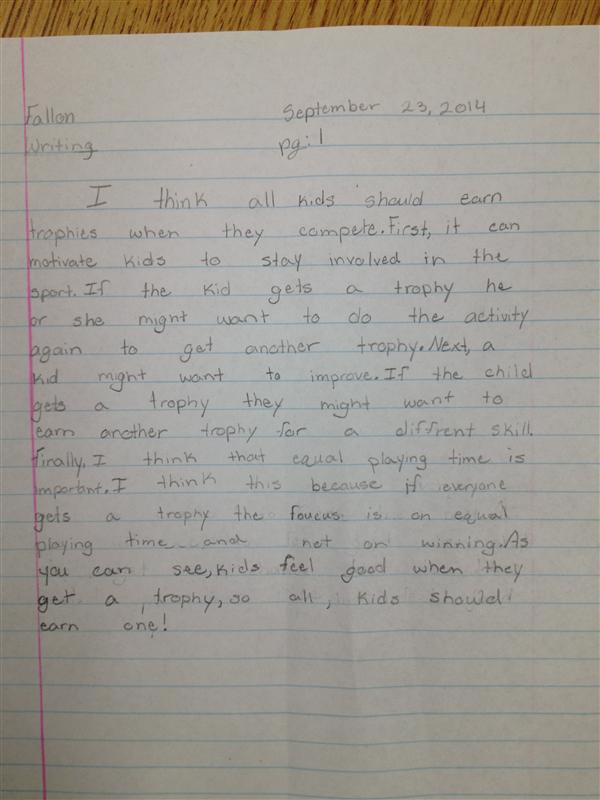 Fallon September 23, 2014
Writing pg: 1
I think all kids should earn
trophies when they compete. First, it can
motivate kids to stay involved in the
sport. If the kid gets a trophy he
or she might want to do the activity
again to get another trophy. Next, a
kid might want to improve. If the child
gets a trophy they might want to
earn another trophy for a diffrent skill.
Finally, I think that equal playing time is
important. I think this because if everyone
gets a trophy the foucus is on equal
playing time and not on winning. As
you can see, kids feel good when they
get a trophy, so all, kids should
earn one!